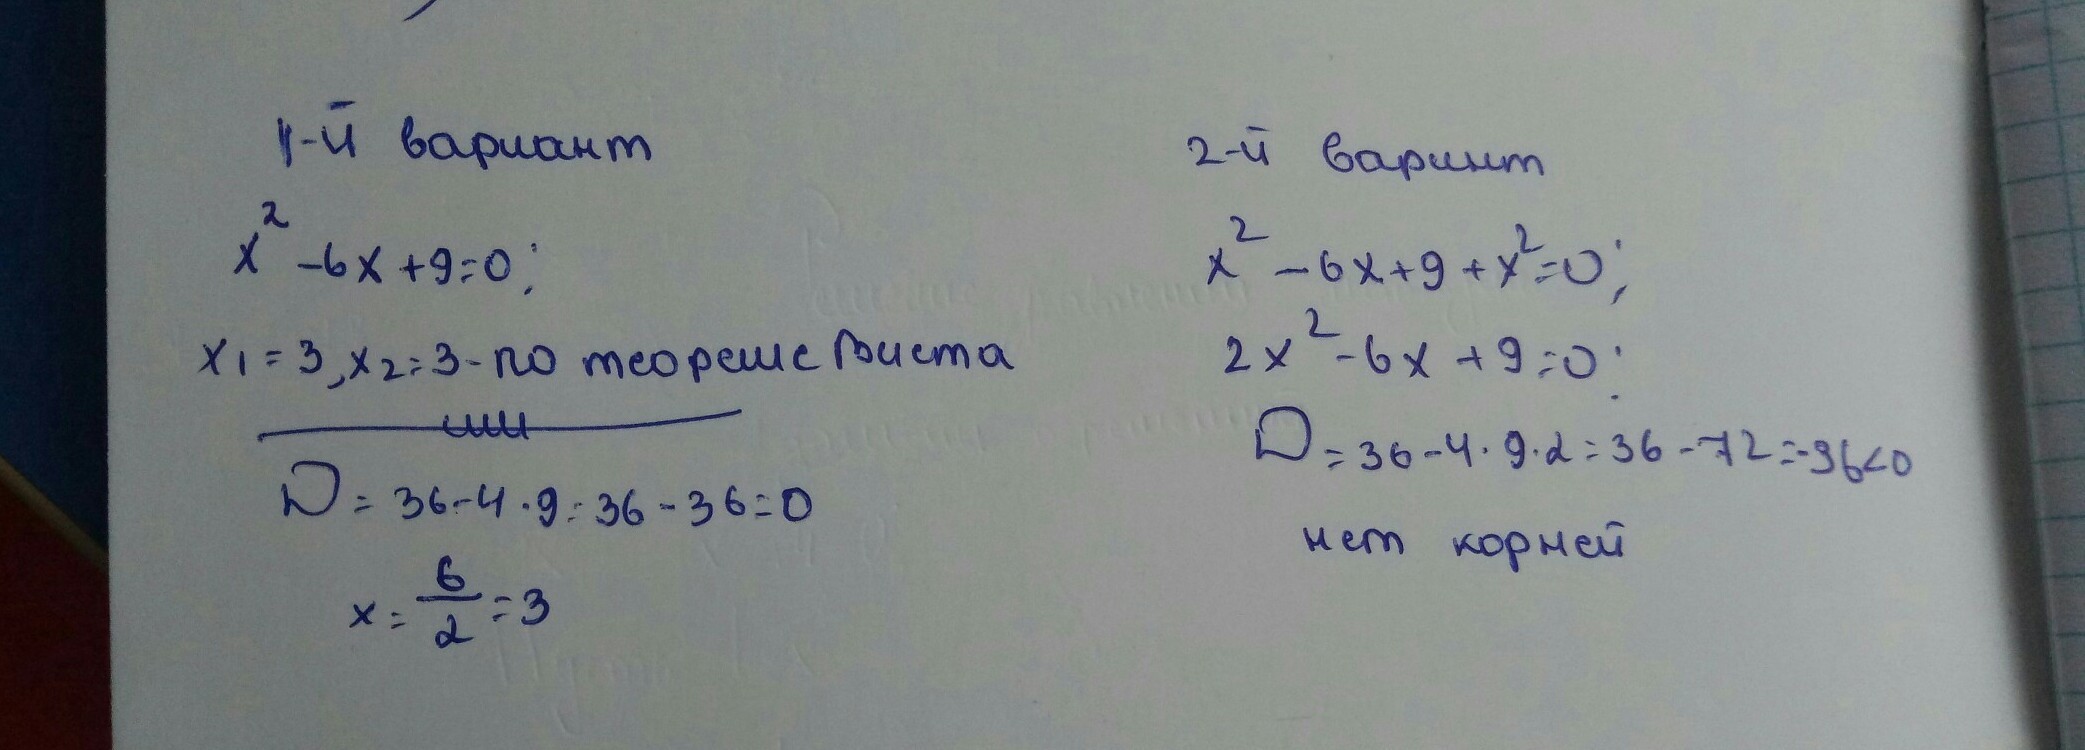 1-й вариант
x² -6x+9=0;
x₁=3, x₂=3-по теореме Виета
или
D=36-4·9=36-36=0
x=6/2=3
2-й варинт
x²-6x+9+x²=0;
2x²-6x+9=0;
D=36-4·9·2=36-72=-36<0
нет корней